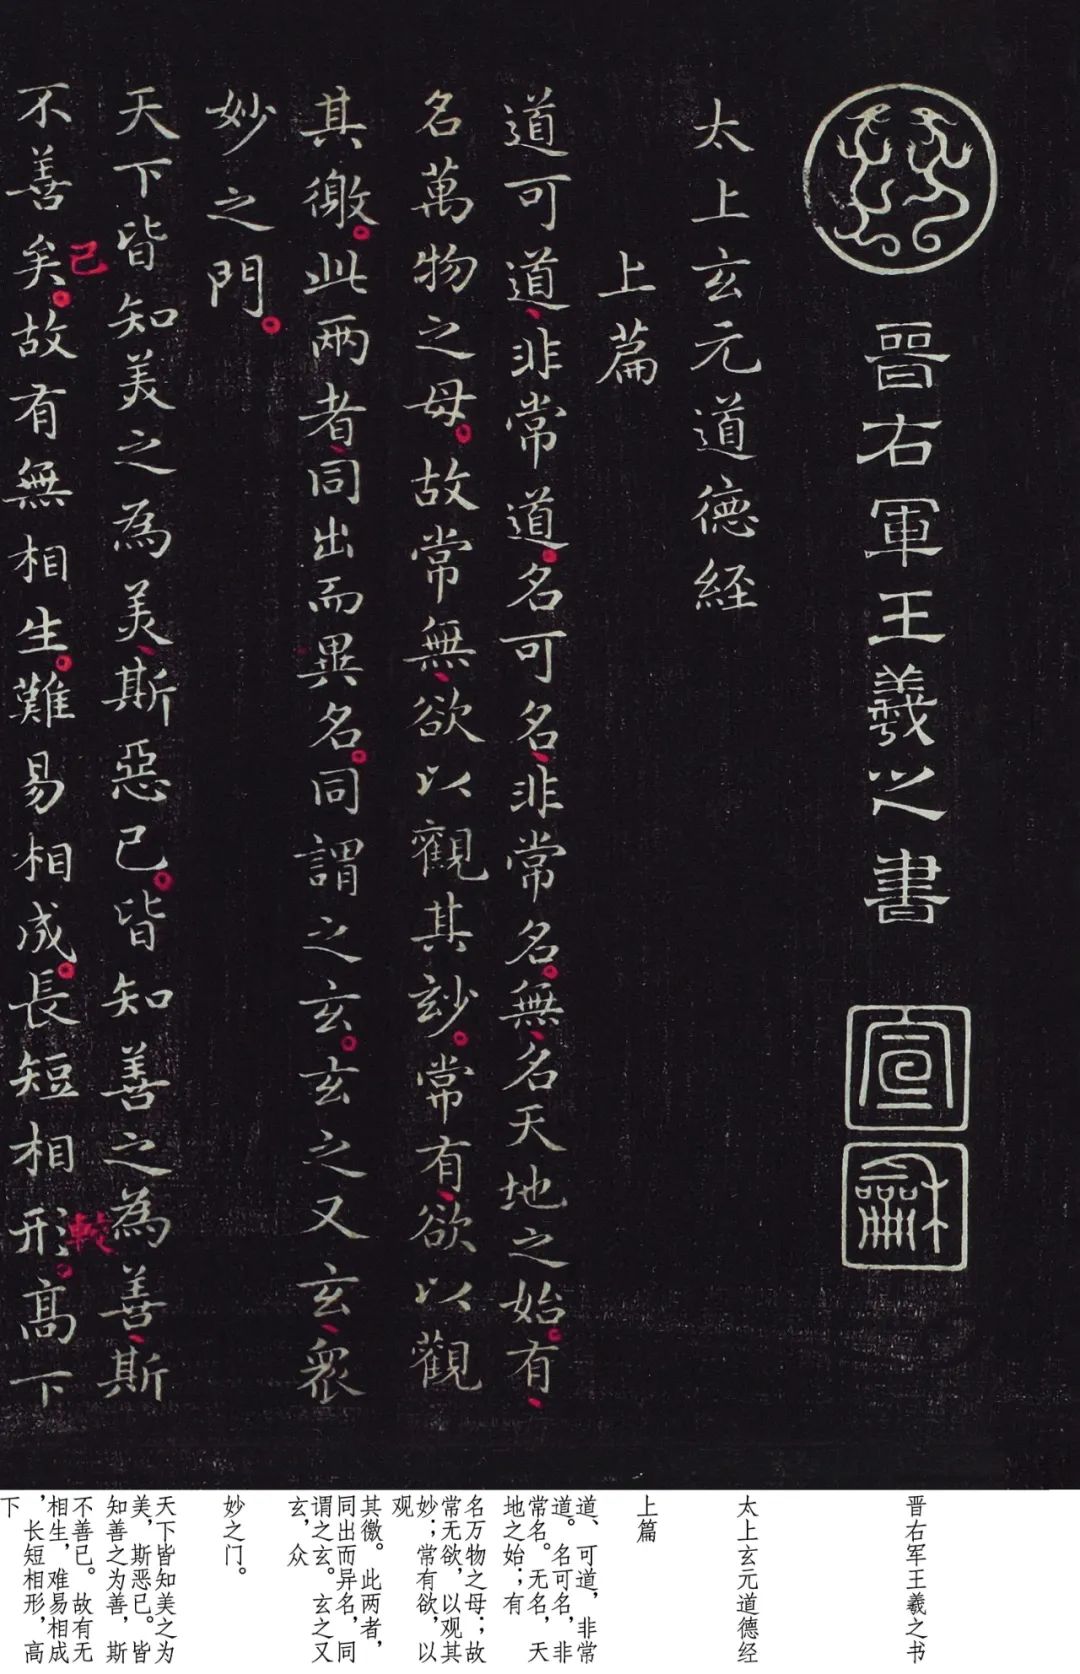 晉右軍王羲之書
宣
龢
太上玄元道德経
上篇
道可道、非常道。名可名、非常名。無、名天地之始。有、
名萬物之母。故常無、欲以觀其玅。常有、欲以觀
其徼。此兩者、同出而異名。同謂之玄。玄之又玄、衆
妙之門。
天下皆知美之為美、斯惡已。皆知善之為善、斯
不善矣。已
故有無相生。難易相成。長短相形。較
高下
晋右军王羲之书
太上玄元道德经
上篇
道、可道，非常
道。名可名，非
常名。无名，天
地之始；有
名万物之母；故
常无欲，以观其
妙；常有欲，以
观
其徼。此两者，
同出而异名，同
谓之玄。玄之又
玄，众
妙之门。
天下皆知美之为
美，斯恶已。皆
知善之为善，斯
不善已。故有无
相生，难易相成
，长短相形，高
下